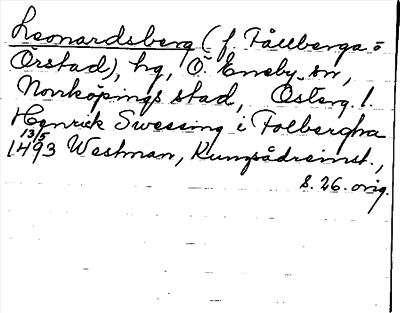 Leonardsberg (f. Fållberga o
Örstad), hg, Ö. Eneby sn,
Norrköpings stad, Österg. l.
Henrik Swessing i Folbergha
13/5
1493 Westman, Kungsådreinst.,
s. 26. orig.